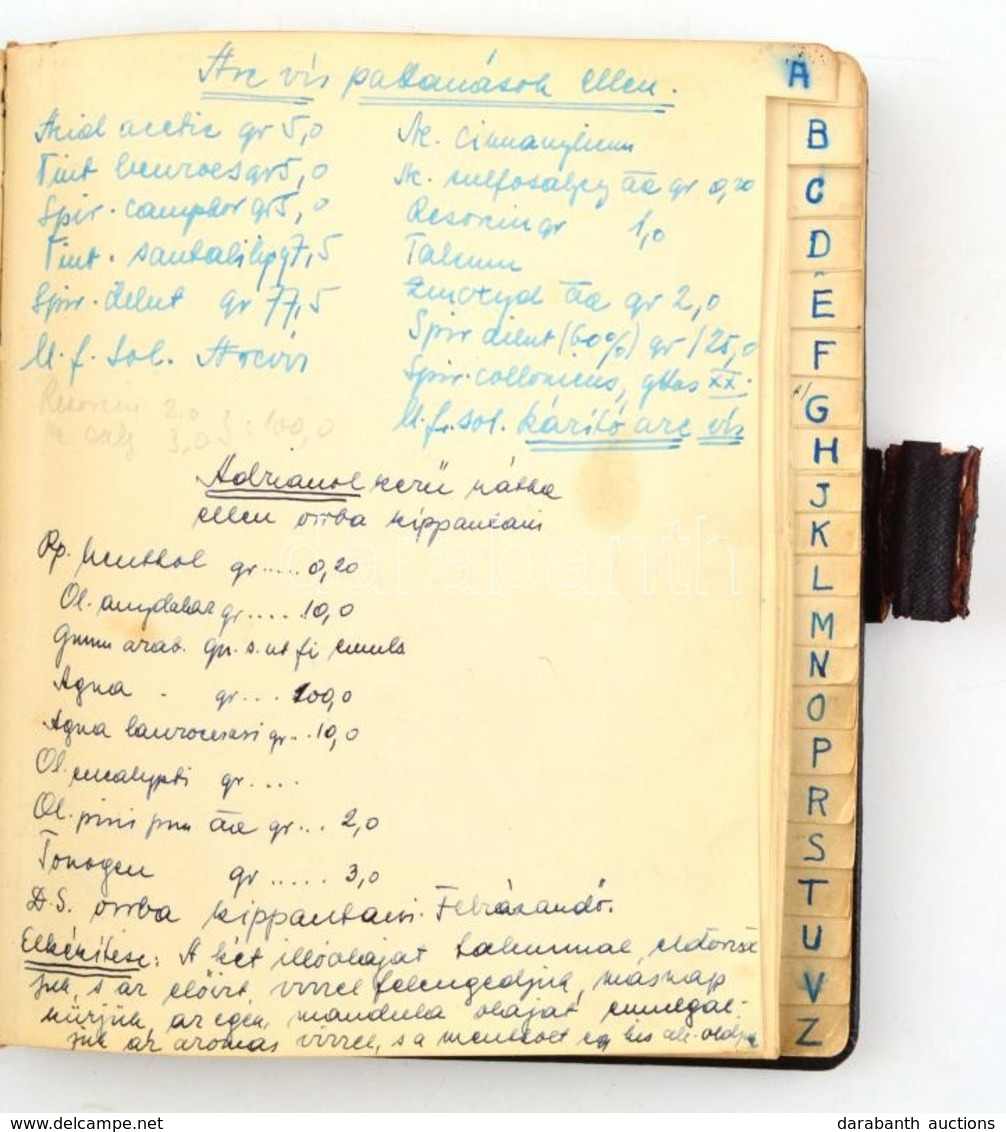 Arc víz pattanások ellen.
Acid acetic gr 5,0
Tint benzoes gr 5,0
Spir. camphor gr 5,0
Tint. santali lip 7,5
Spir. dilut gr 77,5
M.f. sol. Arcvíz
Resorcin 2.0
salj 3,0 100,0
Ac. Cinnamylicum
Ac. sulfosalycy āa gr 0,20
Resorcin gr 1,0
Talcum
Zinc oxyd āa gr 2,0
Spir dilut (60%) gr 125,0
Spir. coloniens, gttas XX.
M.f. sol. kázító arc víz
Adrianol szerű nátha
ellen orrba cseppenteni
Rp. Menthol gr ..... 0,20
Ol. amygdalar gr .... 10,0
Gumm arab. qu. s. ut fi emuls
Aqua . gr ... 100,0
Aqua laurocerasi gr .. 10,0
Ol. eucalypti gr ....
Ol. pini pum āa gr ... 2,0
Tonogen gr ..... 3,0
D.S. orrba Felrázandó.
Elkészítése: A két illóolajat talcummal eldörzsöl
jük, s az előírt vízzel felengedjük, másnap
szűrjük, az egész mandula olajat emulgeál-
juk az aromás vízzel, s a mentolt egy kis alk. oldjuk
A
B
C
D
E
F
G
H
J
K
L
M
N
O
P
R
S
T
U
V
Z
darabanth
www.delcampe.net
darabanth auctions